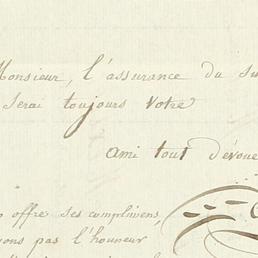 Monsieur, l'assurance du
serai toujours Votre
ami tout dévoué
offre ses complimens,
pas l'honneur